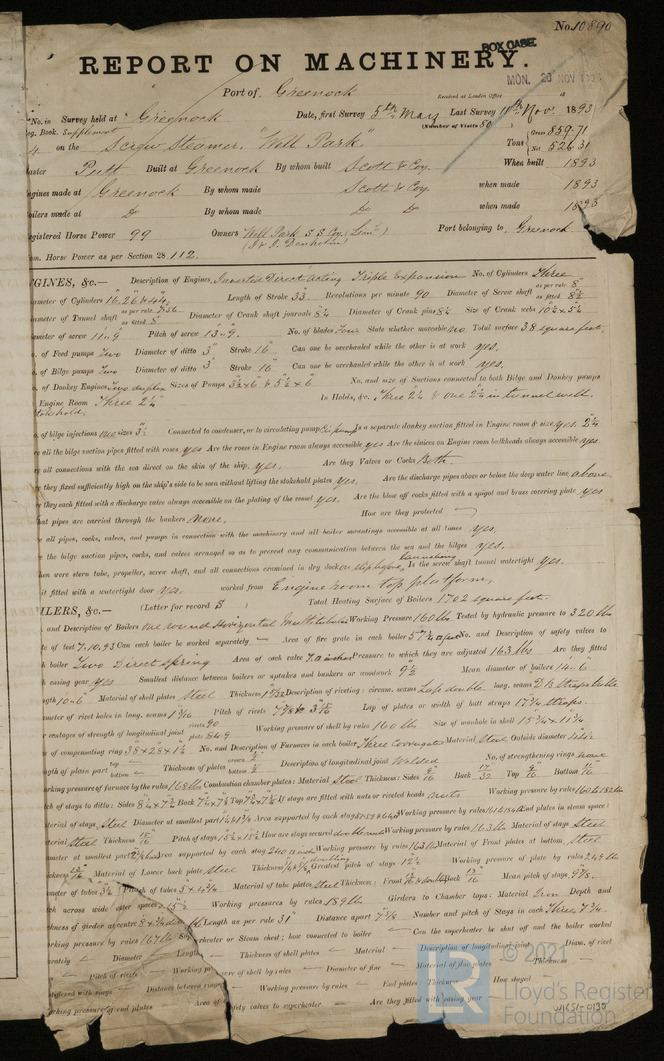 No. 10890
REPORT ON MACHINERY.
BOX CASE
MON. 20 NOV 1893
Port of Greenock
Received at London Office
No. in Survey held at Greenock Date, first Survey 5th May Last Survey 11th Nov 1893
Reg. Book. Supplement (Number of Visits 50)
on the Screw Steamer, "Will Park" Tons Gross 859.71 Net 526.31
Master Putt Built at Greenock By whom built Scott & Coy. When built 1893
Engines made at Greenock By whom made Scott & Coy. when made 1893
Boilers made at Do By whom made Do Do when made 1893
Registered Horse Power 99 Owners Will Park S S Coy (Limd) Port belonging to Greenock
(J & J Denholm)
Nom. Horse Power as per Section 28 112.
GINES, &c.— Description of Engines, Inverted Direct acting Triple Expansion No. of Cylinders Three
Diameter of Cylinders 16, 26 & 42" Length of Stroke 33" Revolutions per minute 90 Diameter of Screw shaft as per rule 8" as fitted 8½
Diameter of Tunnel shaft as per rule 7.56 as fitted 8" Diameter of Crank shaft journals 8¼ Diameter of Crank pins 8¼ Size of Crank webs 10½x5¼
Diameter of screw 11'9" Pitch of screw 13'9" No. of blades Four State whether moveable No Total surface 38 square feet.
No. of Feed pumps Two Diameter of ditto 3" Stroke 16" Can one be overhauled while the other is at work yes.
No. of Bilge pumps Two Diameter of ditto 3" Stroke 16" Can one be overhauled while the other is at work yes.
No. of Donkey Engines Two duplex Sizes of Pumps 3½x6 & 5½x6" No. and size of Suctions connected to both Bilge and Donkey pumps
Engine Room Three 2¼" In Holds, &c. Three 2¼ & one 2½ in tunnel well.
Stokehold.
No. of bilge injections one sizes 3½ Connected to condenser, or to circulating pump Cir pump Is a separate donkey suction fitted in Engine room & size yes. 2¼
Are all the bilge suction pipes fitted with roses yes Are the roses in Engine room always accessible yes Are the sluices on Engine room bulkheads always accessible yes.
Are all connections with the sea direct on the skin of the ship, yes. Are they Valves or Cocks Both.
Are they fixed sufficiently high on the ship's side to be seen without lifting the stokehold plates yes. Are the discharge pipes above or below the deep water line, above
Are they each fitted with a discharge valve always accessible on the plating of the vessel yes. Are the blow off cocks fitted with a spigot and brass covering plate yes
What pipes are carried through the bunkers None. How are they protected —
Are all pipes, cocks, valves, and pumps in connection with the machinery and all boiler mountings accessible at all times yes.
Are the bilge suction pipes, cocks, and valves arranged so as to prevent any communication between the sea and the bilges yes.
When were stern tube, propeller, screw shaft, and all connections examined in dry dock on slip before launching Is the screw shaft tunnel watertight yes.
Is it fitted with a watertight door yes. worked from Engine room top platform.
ILERS, &c.— (Letter for record S) Total Heating Surface of Boilers 1702 square feet.
No. and Description of Boilers One round Horizontal Multitubular Working Pressure 160 lbs Tested by hydraulic pressure to 320 lbs
Date of test 7.10.93 Can each boiler be worked separately — Area of fire grate in each boiler 57½ sq feet No. and Description of safety valves to
each boiler Two Direct spring Area of each valve 7.0 inches Pressure to which they are adjusted 163 lbs Are they fitted
with casing gear yes Smallest distance between boilers or uptakes and bunkers or woodwork 9½ Mean diameter of boilers 14'.6"
Length 10'-6" Material of shell plates Steel Thickness 1 Description of riveting: circum. seams Lap double long. seams D B Straps treble
Diameter of rivet holes in long. seams 1 3/16 Pitch of rivets 7⅞ Lap of plates or width of butt straps 17¼ straps.
Percentages of strength of longitudinal joint rivets 90 plate 84.9 Working pressure of shell by rules 160 lbs Size of manhole in shell 15¾x11¾
Size of compensating ring 38x28x1¼ No. and Description of Furnaces in each boiler Three Corrugated Material Steel Outside diameter
Length of plain part top — bottom — Thickness of plates crown ½ bottom ½ Description of longitudinal joint Welded No. of strengthening rings none
Working pressure of furnace by the rules 168 lbs Combustion chamber plates: Material Steel Thickness: Sides 9/16 Back 17/32 Top 9/16 Bottom 11/16
Pitch of stays to ditto: Sides 8¼x7¾ Back Top If stays are fitted with nuts or riveted heads nuts Working pressure by rules
Material of stays Steel Diameter at smallest part Area supported by each stay Working pressure by rules End plates in steam space:
Material Steel Thickness 15/16 Pitch of stays 15½x15½ How are stays secured double nuts Working pressure by rules 163 lbs Material of stays Steel
Diameter at smallest part Area supported by each stay 240 inch Working pressure by rules 163 lbs Material of Front plates at bottom Steel
Thickness 13/16 Material of Lower back plate Steel Thickness Greatest pitch of stays 12½ Working pressure of plate by rules
Diameter of tubes 3¼ Pitch of tubes 5 x 4¾ Material of tube plates Steel Thickness: Front Back 13/16 Mean pitch of stays 9⅞.
Pitch across wide water spaces 15" Working pressures by rules 189 lbs Girders to Chamber tops: Material Iron Depth and
thickness of girder at centre Length as per rule 31" Distance apart 7⅞ Number and pitch of Stays in each Three 7¾.
Working pressure by rules 167 lbs Superheater or Steam chest; how connected to boiler — Can the superheater be shut off and the boiler worked
separately — Diameter — Length — Thickness of shell plates — Material — Description of longitudinal joint — Diam. of rivet
holes — Pitch of rivets — Working pressure of shell by rules — Diameter of flue — Material of flue plates — Thickness —
Stiffened with rings — Distance between rings — Working pressure by rules — End plates: Thickness — How stayed
Working pressure of end plates — Area of safety valves to superheater — Are they fitted with easing gear —
© 2021
LR
Lloyd's Register
Foundation
W1651-0135